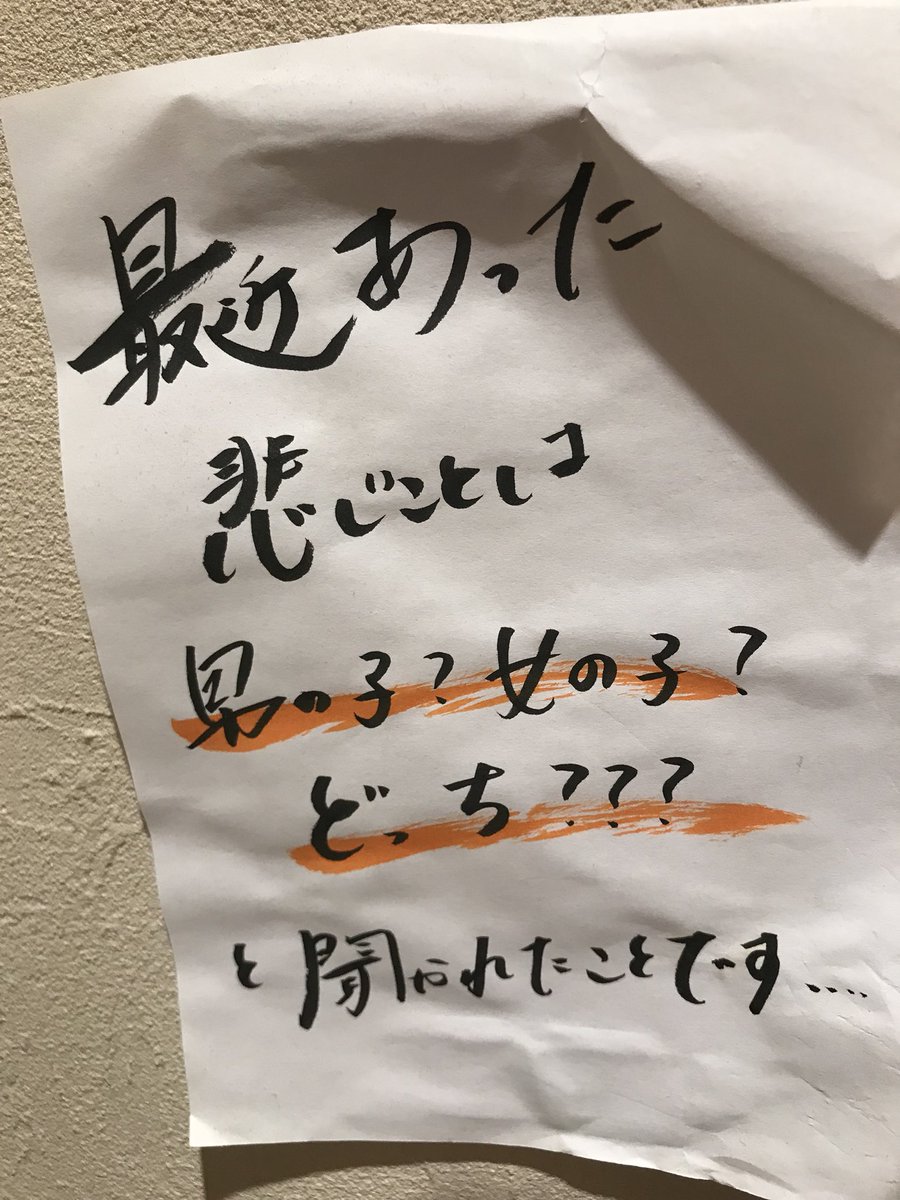 最近あった
悲しいことは
男の子?女の子?
どっち???
と聞かれたことです....